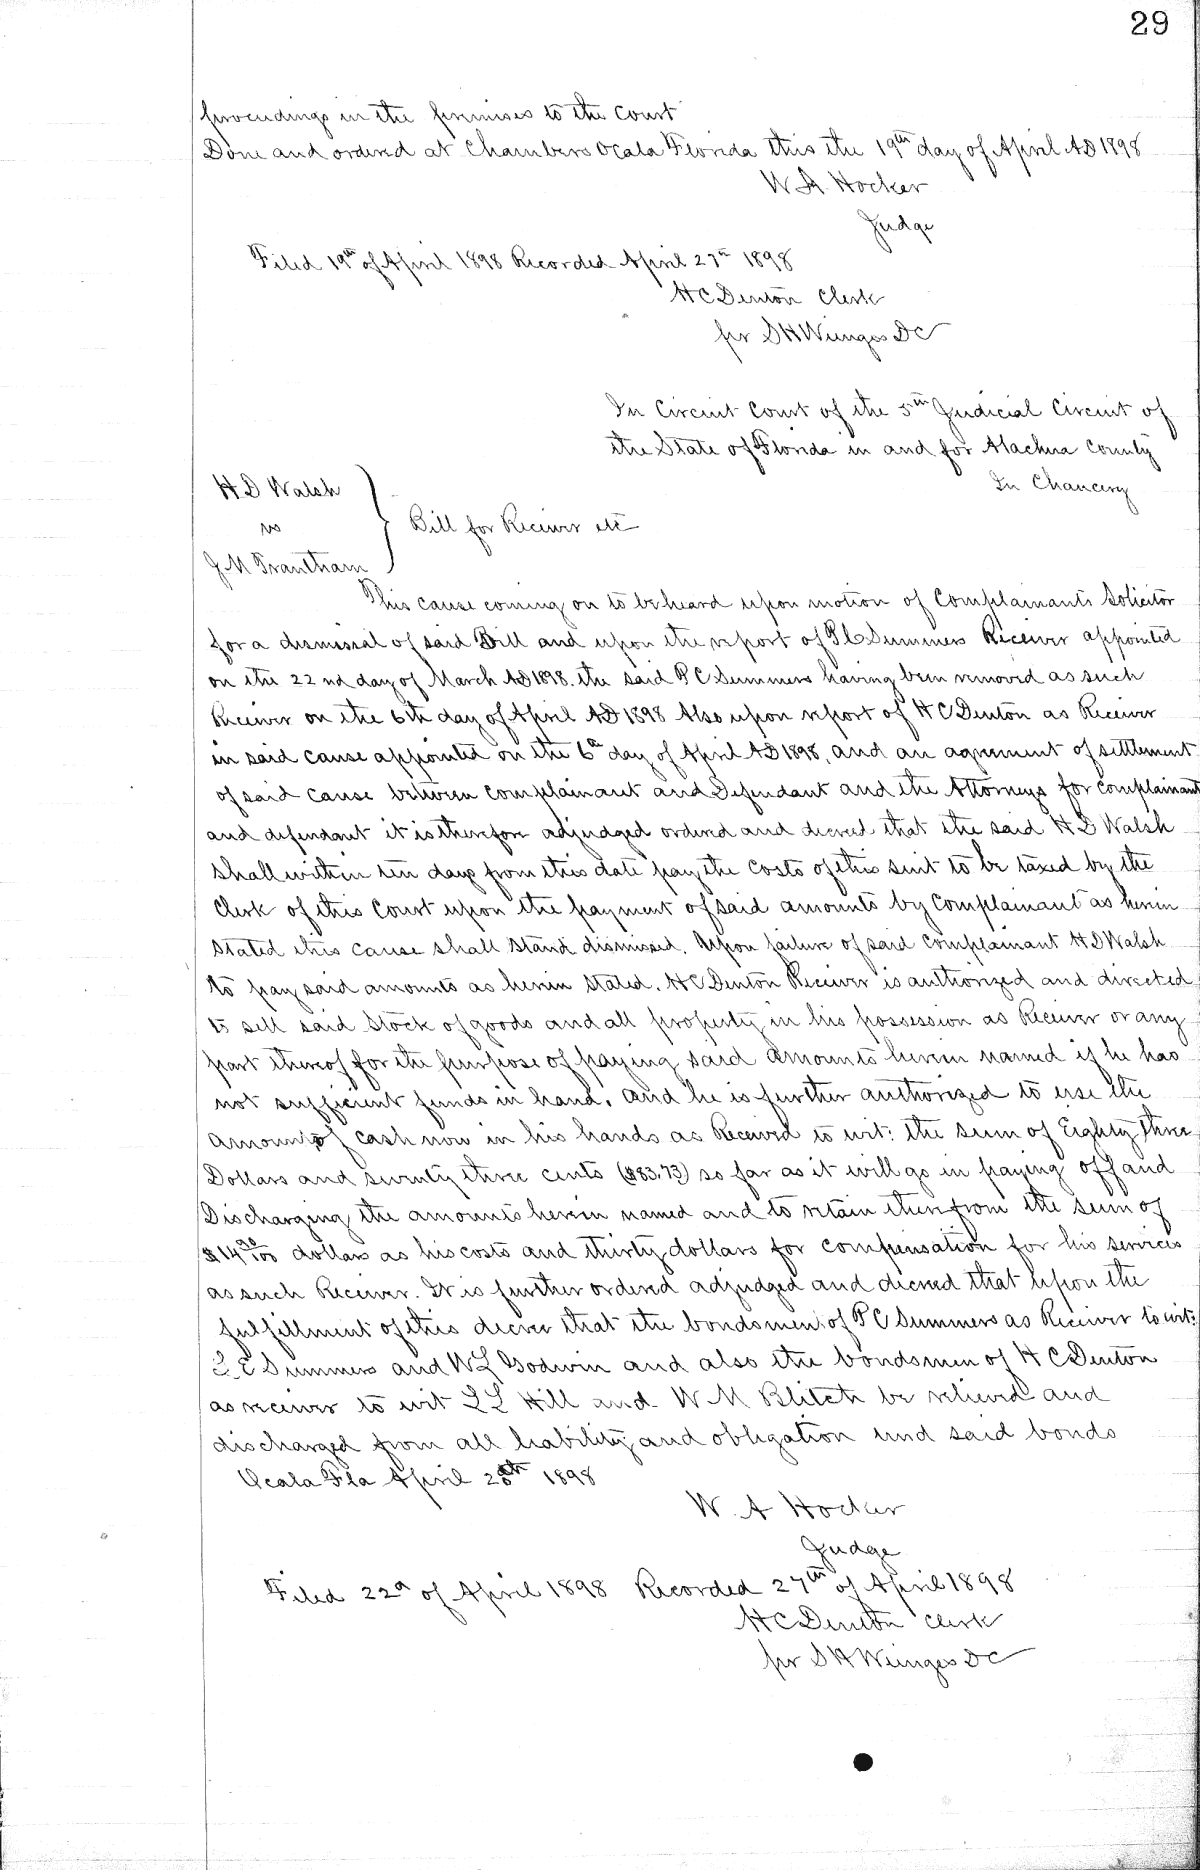 29
proceedings in the premises to the Court
Done and ordered at Chambers Ocala Florida this the 19th day of April AD 1898
W. A. Hocker
Judge
Filed 19th of April 1898 Recorded April 27th 1898
H C Denton Clerk
per S H Wienges DC
In Circuit Court of the 5th Judicial Circuit of
the State of Florida in and for Alachua County
In Chancery
H D Walsh
vs
J. M Trantham
Bill for Receiver etc
This cause coming on to be heard upon motion of Complainants Solicitor
for a dismissal of said Bill and upon the report of P C Summers Receiver appointed
on the 22nd day of March AD 1898. the said P C Summers having been removed as such
Receiver on the 6th day of April AD 1898 Also upon report of H C Denton as Receiver
in said cause appointed on the 6th day of April AD 1898, and an agreement of settlement
of said cause between complainant and Defendant and the Attorneys for complainant
and defendant it is therefore adjudged ordered and decreed that the said H D Walsh
shall within ten days from this date pay the costs of this suit to be taxed by the
Clerk of this Court upon the payment of said amounts by Complainant as herein
stated this cause shall stand dismissed. Upon failure of said complainant H D Walsh
to pay said amounts as herein stated. H C Denton Receiver is authorized and directed
to sell said stock of goods and all property in his possession as Receiver or any
part thereof for the purpose of paying said amounts herein named if he has
not sufficient funds in hand. and he is further authorized to use the
amount of cash now in his hands as Received to wit: the sum of Eighty three
Dollars and seventy three cents ($83.73) so far as it will go in paying off and
Discharging the amounts herein named and to retain therefrom the sum of
$14 /100 dollars as his costs and thirty dollars for compensation for his services
as such Receiver. It is further ordered adjudged and decreed that upon the
fulfillment of this decree that the bondsmen of P C Summers as Receiver to wit:
L. C Summers and W L Godwin and also the bondsmen of H C Denton
as receiver to wit L L Hill and W M Blitch be relieved and
discharged from all liability and obligation und said bonds
Ocala Fla April 20th 1898
W. A Hocker
Judge
Filed 22d of April 1898 Recorded 27th of April 1898
H C Denton Clerk
per S H Wienges DC